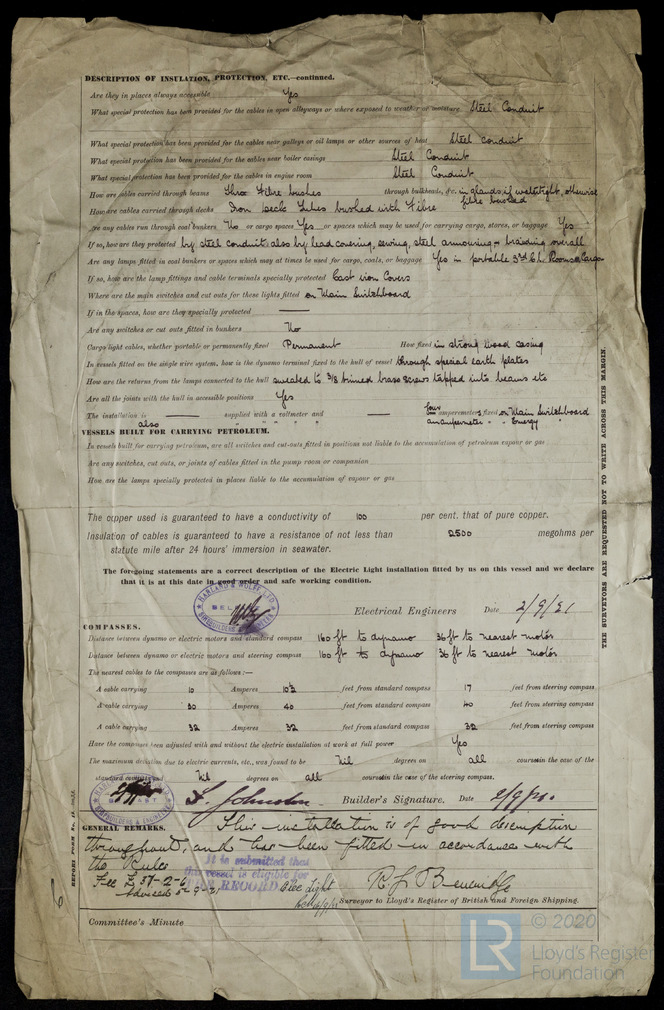 DESCRIPTION OF INSULATION, PROTECTION, ETC.—continued.
Are they in places always accessible Yes
What special protection has been provided for the cables in open alleyways or where exposed to weather or moisture Steel Conduit
What special protection has been provided for the cables near galleys or oil lamps or other sources of heat Steel conduit
What special protection has been provided for the cables near boiler casings Steel Conduit
What special protection has been provided for the cables in engine room Steel Conduit
How are cables carried through beams Thro Fibre bushes through bulkheads, &c. in glands if watertight, otherwise fibre bushed
How are cables carried through decks Iron deck tubes bushed with Fibre
Are any cables run through coal bunkers No or cargo spaces Yes or spaces which may be used for carrying cargo, stores, or baggage Yes
If so, how are they protected by steel conduit also by lead covering, steel armouring & braiding overall
Are any lamps fitted in coal bunkers or spaces which may at times be used for cargo, coals, or baggage Yes in portable 3rd Cl. Rooms & Cargo
If so, how are the lamp fittings and cable terminals specially protected Cast iron Covers
Where are the main switches and cut outs for these lights fitted on Main Switchboard
If in the spaces, how are they specially protected
Are any switches or cut outs fitted in bunkers No
Cargo light cables, whether portable or permanently fixed Permanent How fixed in strong wood casing
In vessels fitted on the single wire system, how is the dynamo terminal fixed to the hull of vessel through special earth plates
How are the returns from the lamps connected to the hull sweated to 3/8 tinned brass screws tapped into beams etc
Are all the joints with the hull in accessible positions Yes
The installation is supplied with a voltmeter and four amperemeters fixed on Main Switchboard
also " " " " an amperemeter " " Energy "
VESSELS BUILT FOR CARRYING PETROLEUM.
In vessels built for carrying petroleum, are all switches and cut-outs fitted in positions not liable to the accumulation of petroleum vapour or gas
Are any switches, cut outs, or joints of cables fitted in the pump room or companion
How are the lamps specially protected in places liable to the accumulation of vapour or gas
The copper used is guaranteed to have a conductivity of 100 per cent. that of pure copper.
Insulation of cables is guaranteed to have a resistance of not less than 2500 megohms per
statute mile after 24 hours' immersion in seawater.
The foregoing statements are a correct description of the Electric Light installation fitted by us on this vessel and we declare
that it is at this date in good order and safe working condition.
HARLAND & WOLFF, LTD
SHIPBUILDERS & ENGINEERS
Electrical Engineers Date 2/9/21
COMPASSES.
Distance between dynamo or electric motors and standard compass 160 ft to dynamo 36 ft to nearest motor
Distance between dynamo or electric motors and steering compass 160 ft to dynamo 36 ft to nearest motor
The nearest cables to the compasses are as follows:—
A cable carrying 10 Amperes feet from standard compass 17 feet from steering compass
A cable carrying 30 Amperes 40 feet from standard compass 40 feet from steering compass
A cable carrying 32 Amperes 32 feet from standard compass 32 feet from steering compass
Have the compasses been adjusted with and without the electric installation at work at full power Yes
The maximum deviation due to electric currents, etc., was found to be Nil degrees on all courses in the case of the
standard compass and Nil degrees on all courses in the case of the steering compass.
HARLAND & WOLFF LTD
SHIPBUILDERS & ENGINEERS
F. Johnston Builder's Signature. Date
GENERAL REMARKS. This installation is of good description
throughout, and has been fitted in accordance with
the Rules
It is submitted that
this vessel is eligible for
RECORD Elec Light
Surveyor to Lloyd's Register of British and Foreign Shipping.
Committee's Minute
THE SURVEYORS ARE REQUESTED NOT TO WRITE ACROSS THIS MARGIN.
LR
© 2020
Lloyd's Register
Foundation